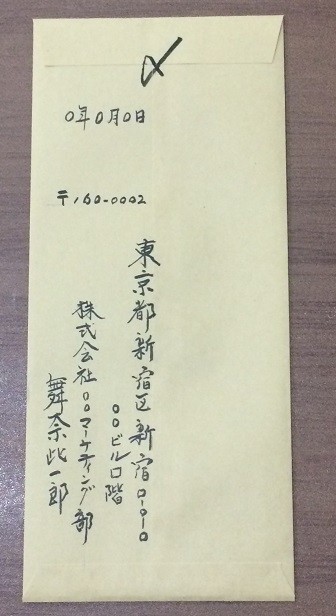 〆
0年0月0日
〒160-0002
東京都新宿区新宿0-0-0
00ビル0階
株式会社00マーケティング部
舞奈比一郎